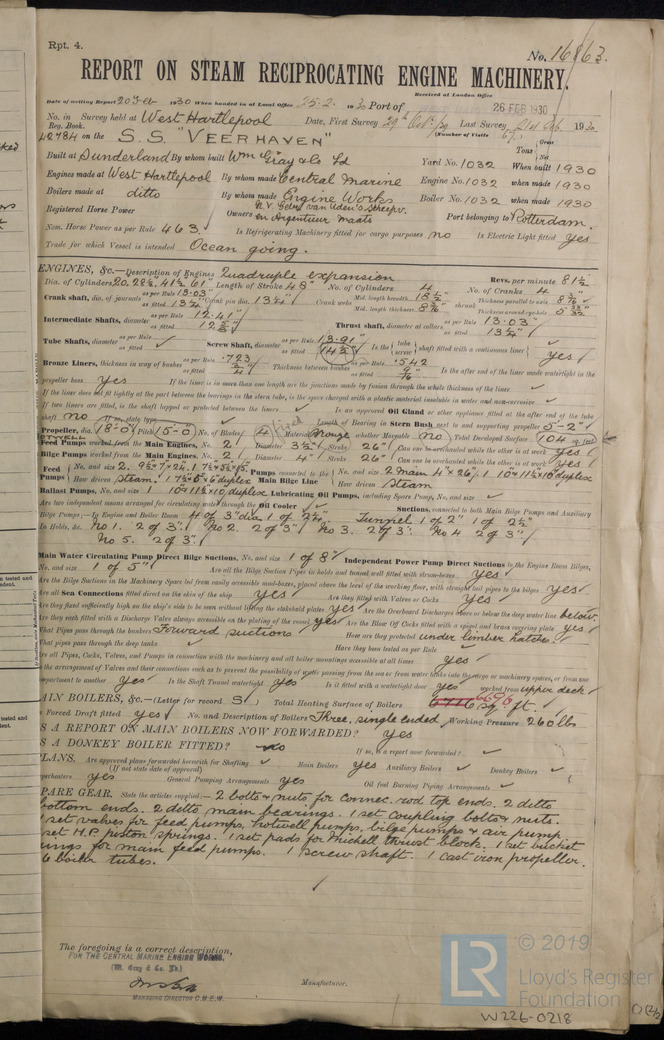 Rpt. 4.
No. 16863.
REPORT ON STEAM RECIPROCATING ENGINE MACHINERY.
Received at London Office
26 FEB 1930
Date of writing Report 20 Feb 1930 When handed in at Local Office 25.2. 1930 Port of
No. in Survey held at West Hartlepool Date, First Survey Last Survey 21st Feb. 1930
Reg. Book. (Number of Visits
42784 on the S.S. "VEERHAVEN" Tons Gross Net
Built at Sunderland By whom built Wm Gray & Co Ld Yard No. 1032 When built 1930
Engines made at West Hartlepool By whom made Central Marine Engine No. 1032 when made 1930
Boilers made at ditto By whom made Engine Works Boiler No. 1032 when made 1930
Registered Horse Power Owners Port belonging to Rotterdam.
Nom. Horse Power as per Rule 463. Is Refrigerating Machinery fitted for cargo purposes no Is Electric Light fitted yes
Trade for which Vessel is intended Ocean going.
ENGINES, &c.—Description of Engines Quadruple expansion Revs. per minute 81½
Dia. of Cylinders 20, 28½, 41½, 61 Length of Stroke 48" No. of Cylinders 4 No. of Cranks 4
Crank shaft, dia. of journals as per Rule 13.03" as fitted 13¼" Crank pin dia. 13¼" Crank webs Mid. length breadth Mid. length thickness shrunk Thickness parallel to axis Thickness around eye-hole
Intermediate Shafts, diameter as per Rule 12.41" as fitted Thrust shaft, diameter at collars as per Rule 13.03" as fitted 13¼"
Tube Shafts, diameter as per Rule as fitted Screw Shaft, diameter as per Rule 13.91" as fitted Is the tube screw shaft fitted with a continuous liner yes
Bronze Liners, thickness in way of bushes as per Rule .723 as fitted ¾" Thickness between bushes as per Rule .542 as fitted 9/16" Is the after end of the liner made watertight in the
propeller boss yes If the liner is in more than one length are the joints made by fusion through the whole thickness of the liner
If the liner does not fit tightly at the part between the bearings in the stern tube, is the space charged with a plastic material insoluble in water and non-corrosive
If two liners are fitted, is the shaft lapped or protected between the liners Is an approved Oil Gland or other appliance fitted at the after end of the tube
shaft no Length of Bearing in Stern Bush next to and supporting propeller 5'-2"
Propeller, dia. 18'-0" Pitch 15'-0" No. of Blades 4 Material Bronze whether Moveable no Total Developed Surface 104 sq. feet
Feed Pumps worked from the Main Engines, No. 2 Diameter 3½" Stroke 26" Can one be overhauled while the other is at work yes
Bilge Pumps worked from the Main Engines, No. 2 Diameter 4" Stroke 26" Can one be overhauled while the other is at work yes
Feed Pumps No. and size How driven steam Pumps connected to the Main Bilge Line No. and size 2 main 4"x26" 1 10x11½x10 duplex How driven steam
Ballast Pumps, No. and size 1 10x11½x10 duplex Lubricating Oil Pumps, including Spare Pump, No. and size
Are two independent means arranged for circulating water through the Oil Cooler Suctions, connected to both Main Bilge Pumps and Auxiliary
Bilge Pumps:—In Engine and Boiler Room 4 of 3" dia. Tunnel 1 of 2" 1 of 2½"
In Holds, &c. No 1. 2 of 3". No 2. 2 of 3". No 3. 2 of 3". No 4. 2 of 3"
No 5. 2 of 3".
Main Water Circulating Pump Direct Bilge Suctions, No. and size 1 of 8" Independent Power Pump Direct Suctions to the Engine Room Bilges,
No. and size 1 of 5" Are all the Bilge Suction Pipes in holds and tunnel well fitted with strum-boxes yes
Are the Bilge Suctions in the Machinery Space led from easily accessible mud-boxes, placed above the level of the working floor, with straight tail pipes to the bilges yes
Are all Sea Connections fitted direct on the skin of the ship yes Are they fitted with Valves or Cocks yes
Are they fixed sufficiently high on the ship's side to be seen without lifting the stokehold plates yes Are the Overboard Discharges above or below the deep water line below
Are they each fitted with a Discharge Valve always accessible on the plating of the vessel yes Are the Blow Off Cocks fitted with a spigot and brass covering plate yes
What Pipes pass through the bunkers Forward suctions How are they protected under limber hatches
What pipes pass through the deep tanks Have they been tested as per Rule
Are all Pipes, Cocks, Valves, and Pumps in connection with the machinery and all boiler mountings accessible at all times yes
the arrangement of Valves and their connections such as to prevent the possibility of water passing from the sea or from water tanks into the cargo or machinery spaces, or from one
compartment to another yes Is the Shaft Tunnel watertight yes Is it fitted with a watertight door yes worked from upper deck
MAIN BOILERS, &c.—(Letter for record S) Total Heating Surface of Boilers 6696 sq. ft.
Forced Draft fitted yes No. and Description of Boilers Three, single ended Working Pressure 260 lbs
IS A REPORT ON MAIN BOILERS NOW FORWARDED? yes
IS A DONKEY BOILER FITTED? no If so, is a report now forwarded?
PLANS. Are approved plans forwarded herewith for Shafting Main Boilers yes Auxiliary Boilers Donkey Boilers
(If not state date of approval)
Superheaters yes General Pumping Arrangements yes Oil fuel Burning Piping Arrangements
SPARE GEAR. State the articles supplied:— 2 bolts & nuts for connec. rod top ends. 2 ditto
bottom ends. 2 ditto main bearings. 1 set coupling bolts & nuts.
1 set valves for feed pumps, hotwell pumps, bilge pumps & air pump
1 set H.P. piston springs. 1 set pads for Michell thrust block. 1 set bucket
rings for main feed pumps. 1 screw shaft. 1 cast iron propeller.
6 boiler tubes.
The foregoing is a correct description,
FOR THE CENTRAL MARINE ENGINE WORKS.
(W. Gray & Co. Ld.)
Manufacturer.
MANAGING DIRECTOR C.M.E.W.
LR © 2019
Lloyd's Register
Foundation
W226-0218